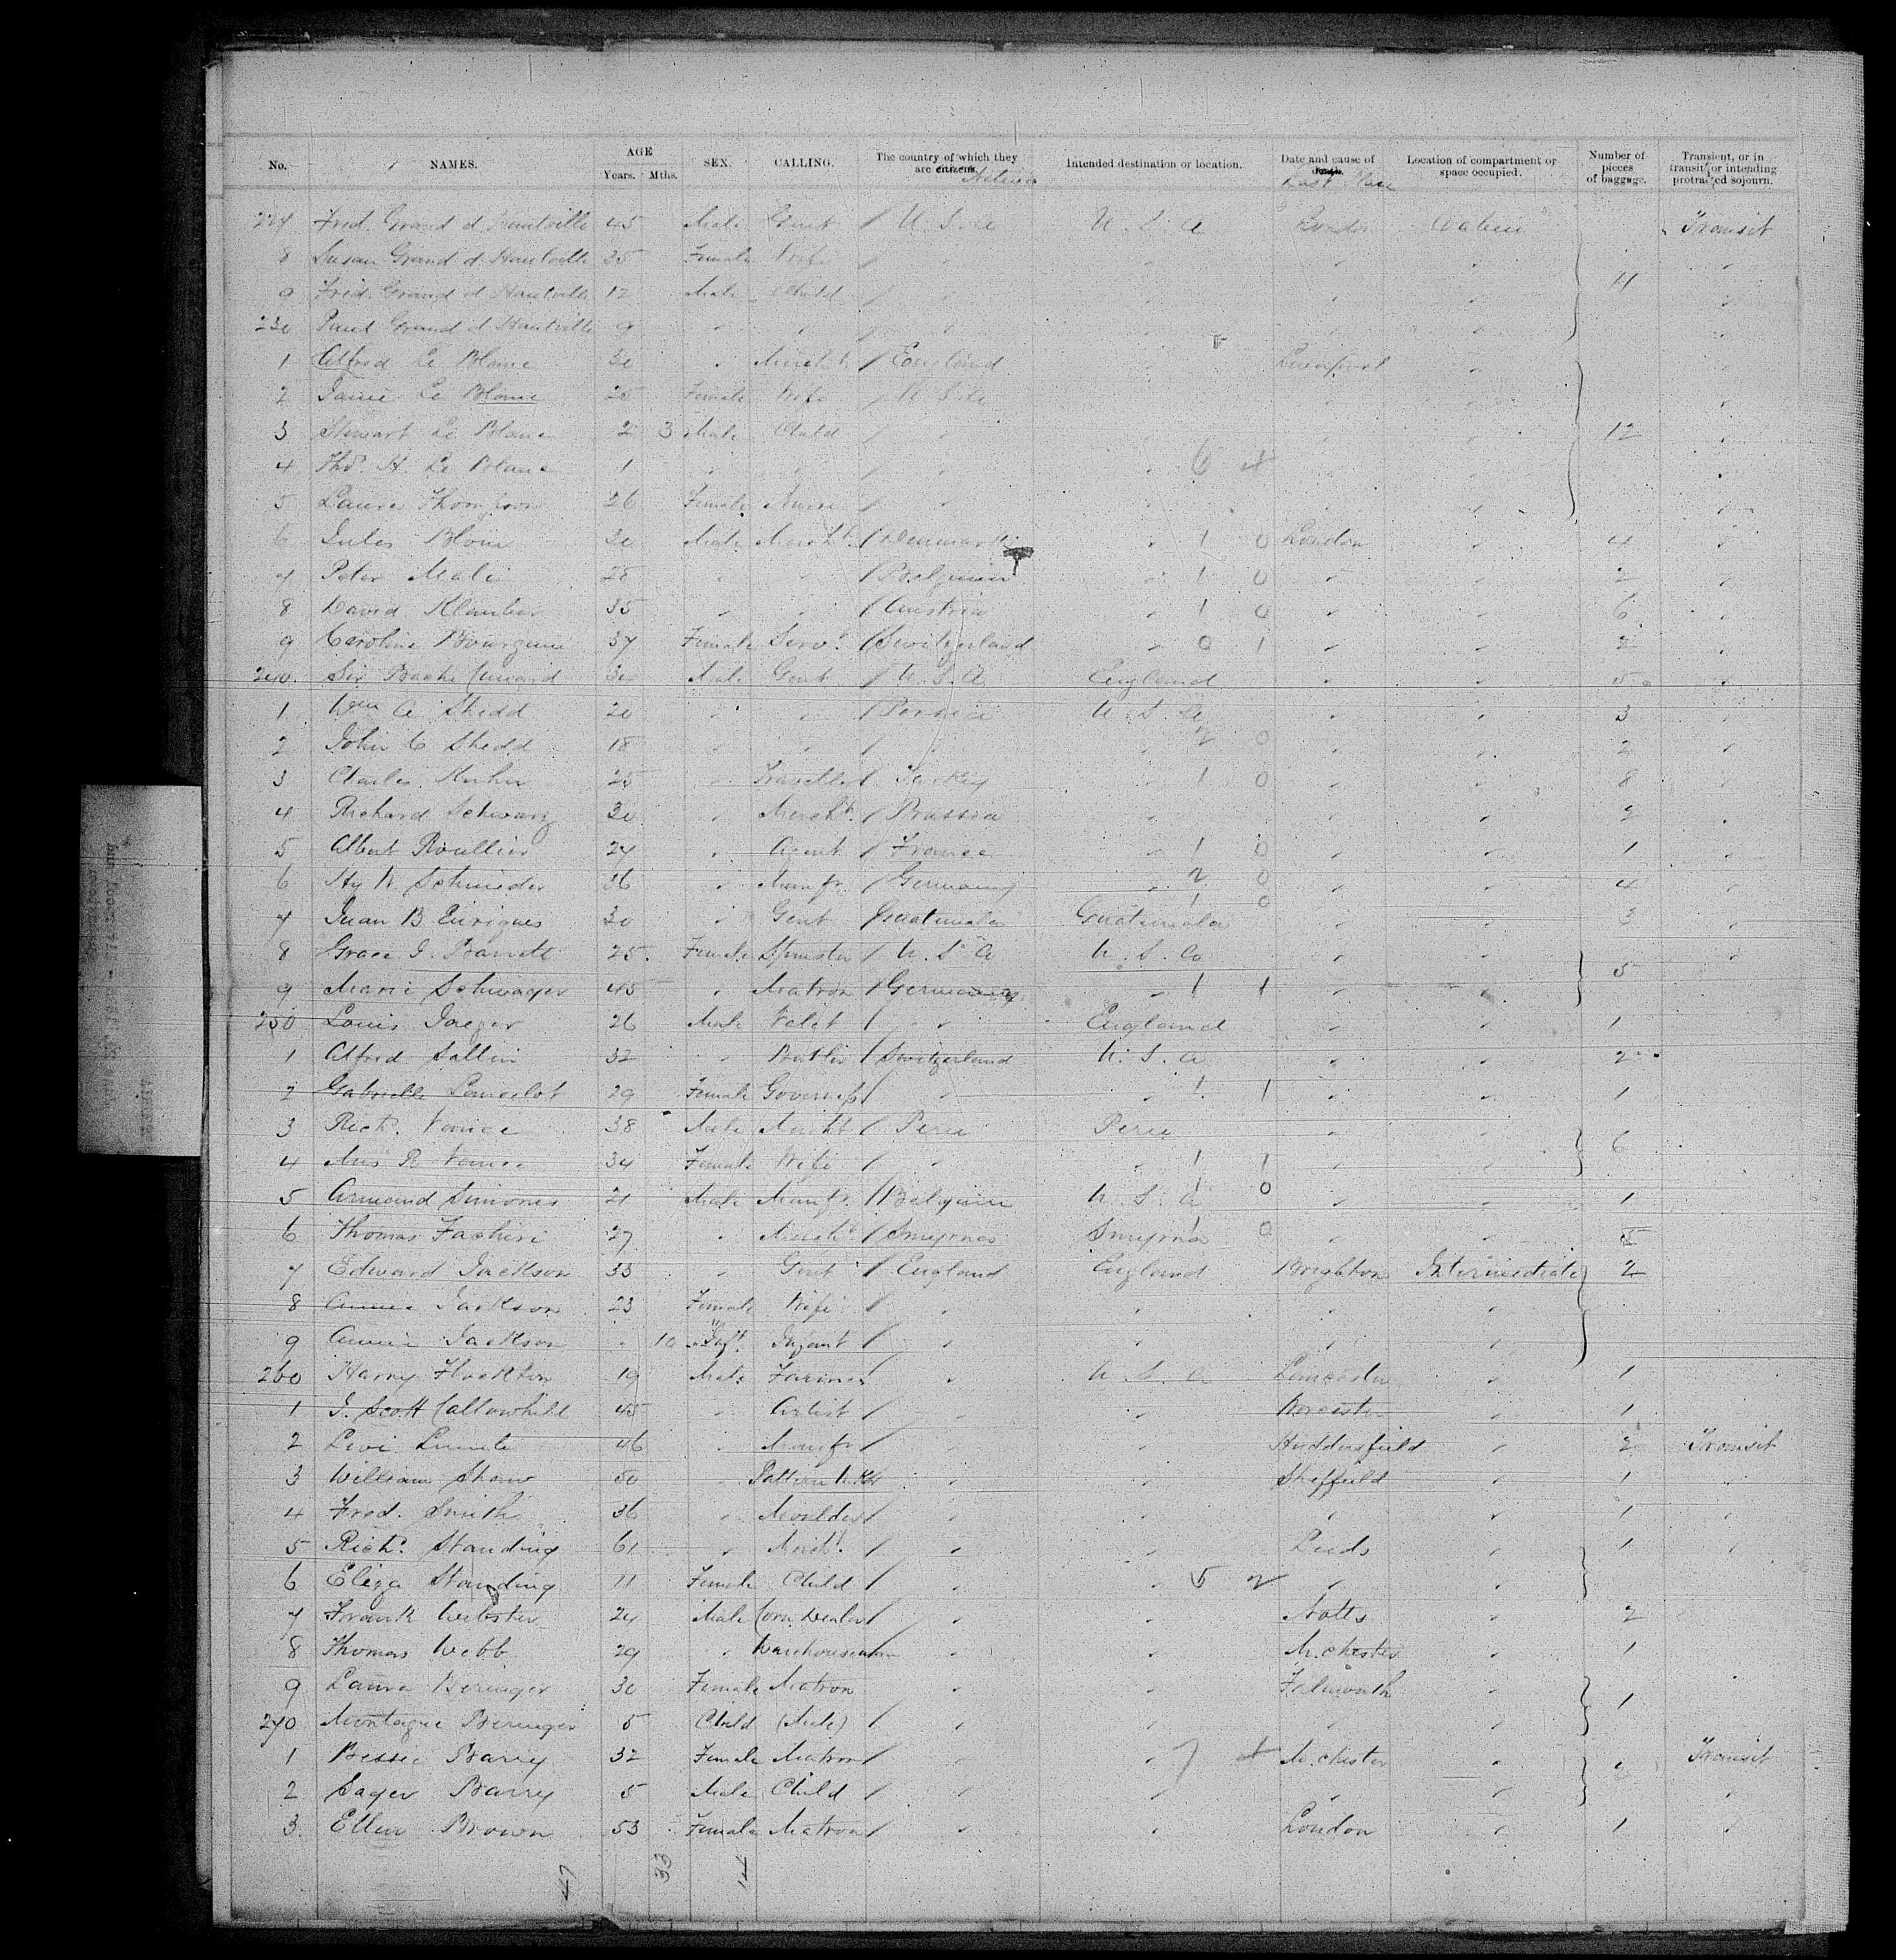 No. NAMES. AGE Years. Mths. SEX. CALLING. The country of which they are citizens. Natives Intended destination or location. Date and cause of death. Last Place Location of compartment or space occupied. Number of pieces of baggage. Transient, or in transit, or intending protracted sojourn.
227 Fred. Grand d Hautville 45 Male Gent / U. S. A U. S. A London Cabin Transit
8 Susan Grand d Hautville 35 Female Wife / " " " " "
9 Fred. Grand d Hautville 12 Male Child / " " " " 11 "
230 Paul Grand d Hautville 9 " " / " " " " "
1 Alfred Le Blanc 30 " Mercht / England " " "
2 Janie Le Blanc 25 Female Wife / U. S. A " " " "
3 Stewart Le Blanc 2 3 Male Child / " " " " 12 "
4 Thos. H. Le Blanc 1 " " / " " 6 4 " " "
5 Laura Thompson 26 Female Nurse / " " " " "
6 Jules Blom 30 Male Mercht / Denmark " 1 0 London " 4 "
7 Peter Mali 28 " " / Belgium " 1 0 " " 2 "
8 David Klauber 35 " " / Austria " 1 0 " " 6 "
9 Caroline Bourquin 37 Female Servt / Switzerland " 0 1 " " 2 "
240. Sir Bache Cunard 30 Male Gent / U. S. A England " " 5 "
1 Wm A Shedd 20 " " / Persia U. S. A " " 3 "
2 John C Shedd 18 " " / " " 2 0 " " 2 "
3 Charles Kuhn 25 " Traveller / Turkey " 1 0 " " 8 "
4 Richard Schwarz 30 " Mercht. / Prussia " " " 2 "
5 Albert Roullier 27 " Agent / France " 1 0 " " 1 "
6 Hy W Schnieder 36 " Manfr. / Germany " 2 0 " " 4 "
7 Juan B Enriques 30 " Gent Guatemala Guatemala 1 0 " " 3 "
8 Grace J. Barrett 25. Female Spinster / U. S. A U. S. A " " "
9 Marie Schwager 45 " Matron / Germany " 1 1 " " 5
250 Louis Jaeger 26 Male Valet / " England " " 1
1 Alfred Sallin 32 " Butler / Switzerland U. S. A " " 2
2 Gabrielle Lancelot 29 Female Governess / " " 1 1 " " 1
3 Richd. Vance 38 Male Mercht / Peru Peru " "
4 Mrs R Vance 34 Female Wife / " " 1 1 " " 6
5 Armand Simonis 21 Male Manfr. / Belgium U. S. A 1 0 " " 1
6 Thomas Fachiri 27 " Mercht / Smyrna Smyrna 1 0 " " 5
7 Edward Jackson 33 " Gent / England England Brighton Intermediate 2
8 Annie Jackson 23 Female Wife / " " " "
9 Annie Jackson - 10 " Inft. Infant / " " " "
260 Harry Flockton 19 Male Farmer / " U. S. A Lancaster " 1
1 J. Scott Callowhill 45 " Artist / " " Worcester " 1
2 Levi 46 " Manfr / " " Huddersfield " 2 Transit
3 William Shaw 50 " Pattern Mkr " " Sheffield " 1 "
4 Fred. Smith 36 " Moulder / " " " " 1 "
5 Richd. Standing 61 " Mercht. / " " Leeds " 1 "
6 Eliza Standing 11 Female Child / " " 5 2 " "
7 Frank Webster 24 Male Corn Dealer / " " Notts " 2
8 Thomas Webb 29 " Warehouseman " " M.chester " 1
9 Laura Beringer 30 Female Matron " " Falmouth "
270 Montague Beringer 5 Child (Male) / " " " " 1
1 Bessie Barry 32 Female Matron / " " 7 4 M.chester " Transit
2 Sager Barry 5 Male Child / " " " " "
3. Ellen Brown 53 Female Matron / " " London " 1 "
47 33 14